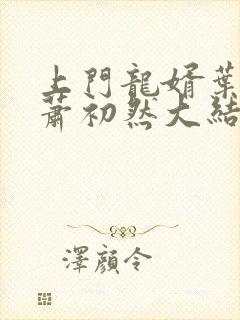 上門龍婿葉
蕭初然大結
澤顏令